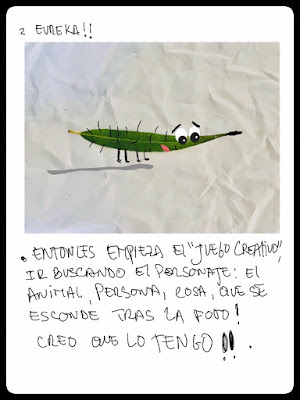 2 EUREKA!!
. ENTONCES EMPIEZA EL "JUEGO CREATIVO",
IR BUSCANDO EL PERSONAJE: EL
ANIMAL, PERSONA, COSA, QUE SE
ESCONDE TRAS LA FOTO!
CREO QUE LO TENGO!!.